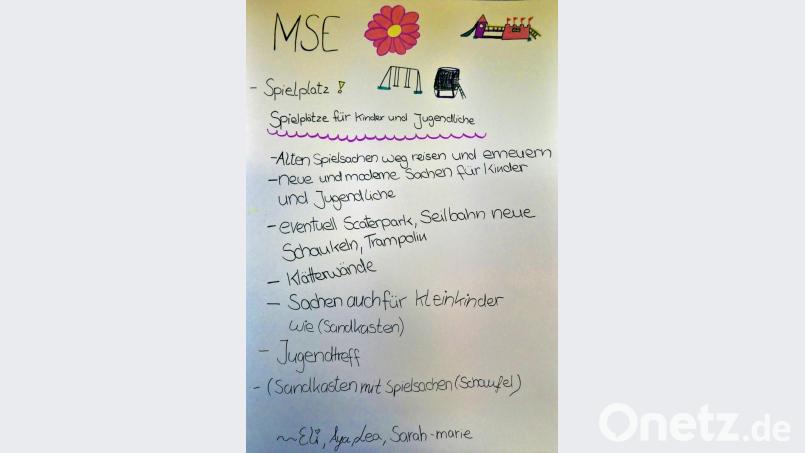 MSE
- Spielplatz !
Spielplätze für Kinder und Jugendliche
- Alten Spielsachen weg reisen und erneuern
- neue und moderne Sachen für Kinder
und Jugendliche
- eventuell Scaterpark, Seilbahn neue
Schaukeln, Trampolin
- Klätterwände
- Sachen auch für Kleinkinder
wie (Sandkasten)
- Jugendtreff
- (Sandkasten mit Spielsachen (Schaufel)
~ Eli, Aya, Lea, Sarah-marie
Onetz.de